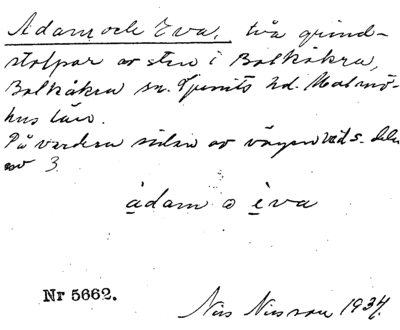 Adam och Eva, två grind-
stolpar av sten i Balkåkra,
Balkåkra sn. Ljunits hd. Malmö-
hus län.
På vardera sidan av vägen vid s. delen
av 3.
ådam o èva
Nr 5662.
Nils Nilsson 1934.